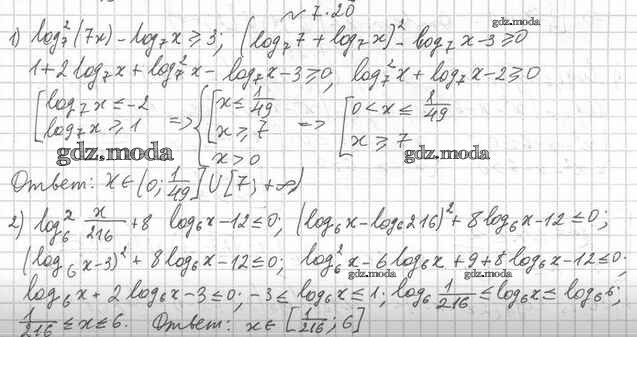 № 7.20
gdz.moda
1) log₇²(7x) - log₇x ≥ 3; (log₇7 + log₇x)² - log₇x - 3 ≥ 0
1 + 2log₇x + log₇²x - log₇x - 3 ≥ 0, log₇²x + log₇x - 2 ≥ 0
[log₇x ≤ -2 log₇x ≥ 1 => {[x ≤ 1/49 x ≥ 7 x > 0 => [0 < x ≤ 1/49 x ≥ 7
gdz.moda gdz.moda
Ответ: x ∈ (0; 1/49] U [7; +∞)
2) log₆² x/216 + 8 log₆x - 12 ≤ 0; (log₆x - log₆216)² + 8log₆x - 12 ≤ 0;
(log₆x - 3)² + 8log₆x - 12 ≤ 0; log₆²x - 6log₆x + 9 + 8log₆x - 12 ≤ 0;
gdz.moda gdz.moda
log₆x + 2log₆x - 3 ≤ 0; -3 ≤ log₆x ≤ 1; log₆ 1/216 ≤ log₆x ≤ log₆6;
1/216 ≤ x ≤ 6. Ответ: x ∈ [1/216; 6]